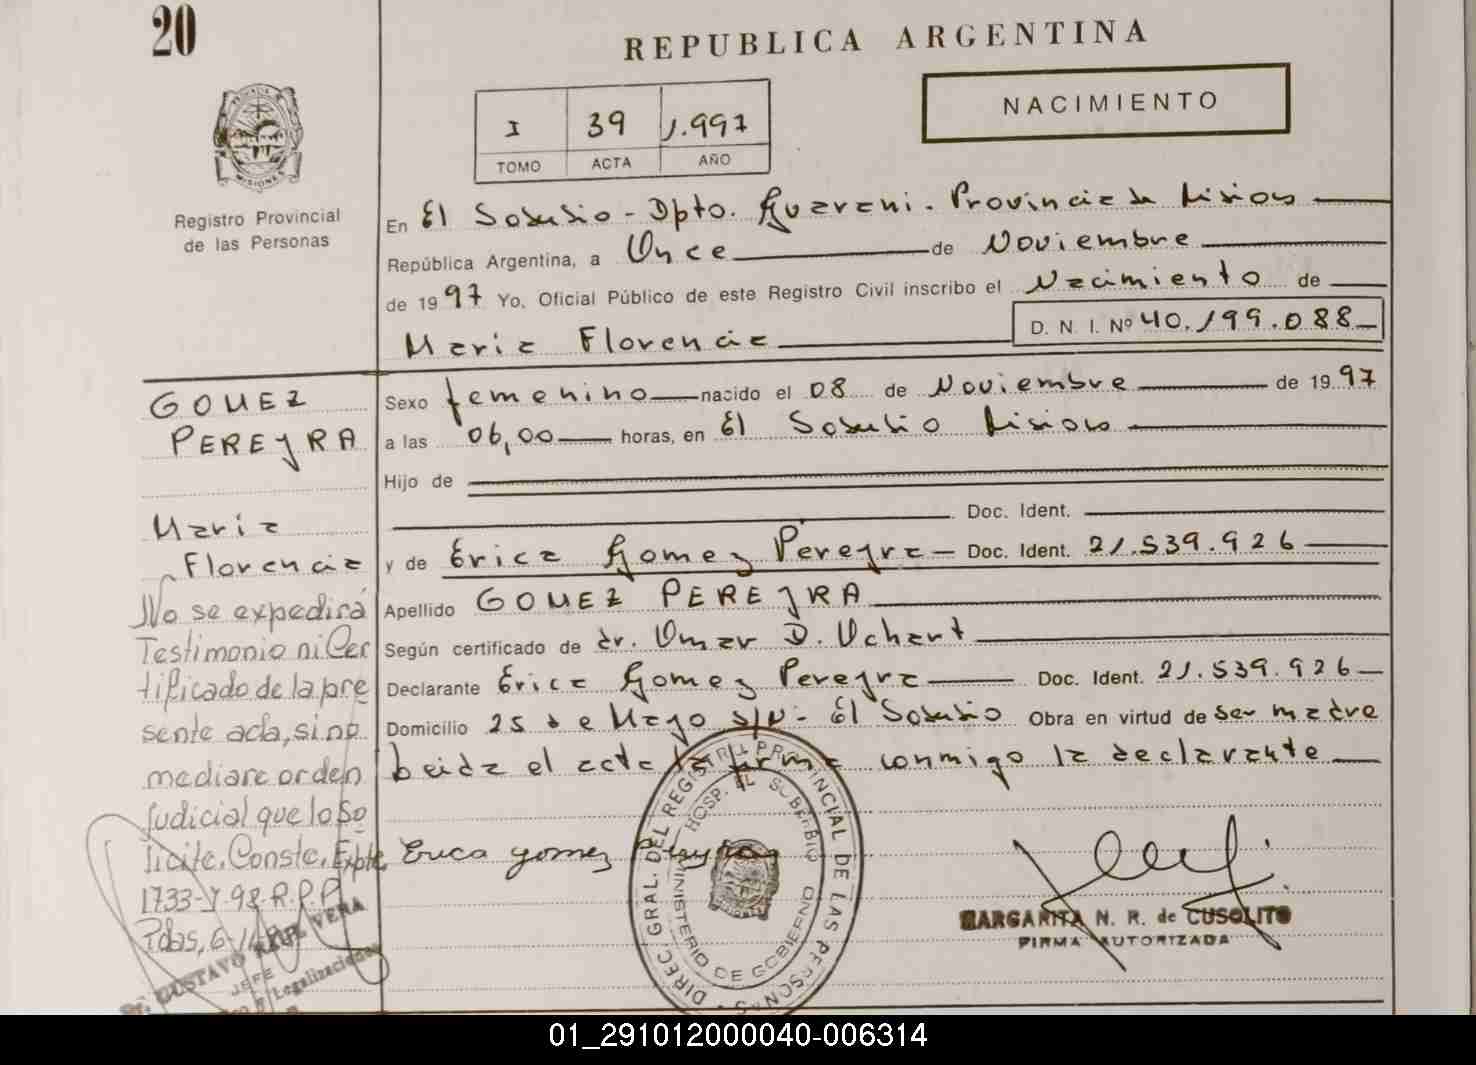 20
REPUBLICA ARGENTINA
NACIMIENTO
I 39 1.997
TOMO ACTA AÑO
MISIONES
Registro Provincial
de las Personas
En El Soberbio - Dpto. Guarani. Provincia de Misiones
República Argentina, a Once de Noviembre
de 1997 Yo, Oficial Público de este Registro Civil inscribo el Nacimiento de
Maria Florencia D. N. I. Nº 40.199.088
GOMEZ
PEREYRA
Maria
Florencia
No se expedirá
Testimonio ni Cer
tificado de la pre
sente acta, sino
mediare orden
judicial que lo so
licite. Conste. Expte
1733-Y-98 R.P.P
Pdas, 6
GUSTAVO VERA
JEFE
Legalizaciones
Sexo femenino nacido el 08 de Noviembre de 1997
a las 06,00 horas, en El Soberbio Misiones
Hijo de
Doc. Ident.
y de Erica Gomez Pereyra Doc. Ident. 21.539.926
Apellido GOMEZ PEREYRA
Según certificado de dr. Omar D. Uchart
Declarante Erica Gomez Pereyra Doc. Ident. 21.539.926
Domicilio 25 de Mayo s/N - El Soberbio Obra en virtud de ser madre
Leida el acta la firma conmigo la declarante
Erica gomez Pereyra
DIREC. GRAL. DEL REGISTRO PROVINCIAL DE LAS PERSONAS
HOSP. EL SOBERBIO
MINISTERIO DE GOBIERNO
MARGARITA N. R. de CUSOLITO
FIRMA AUTORIZADA
01_291012000040-006314